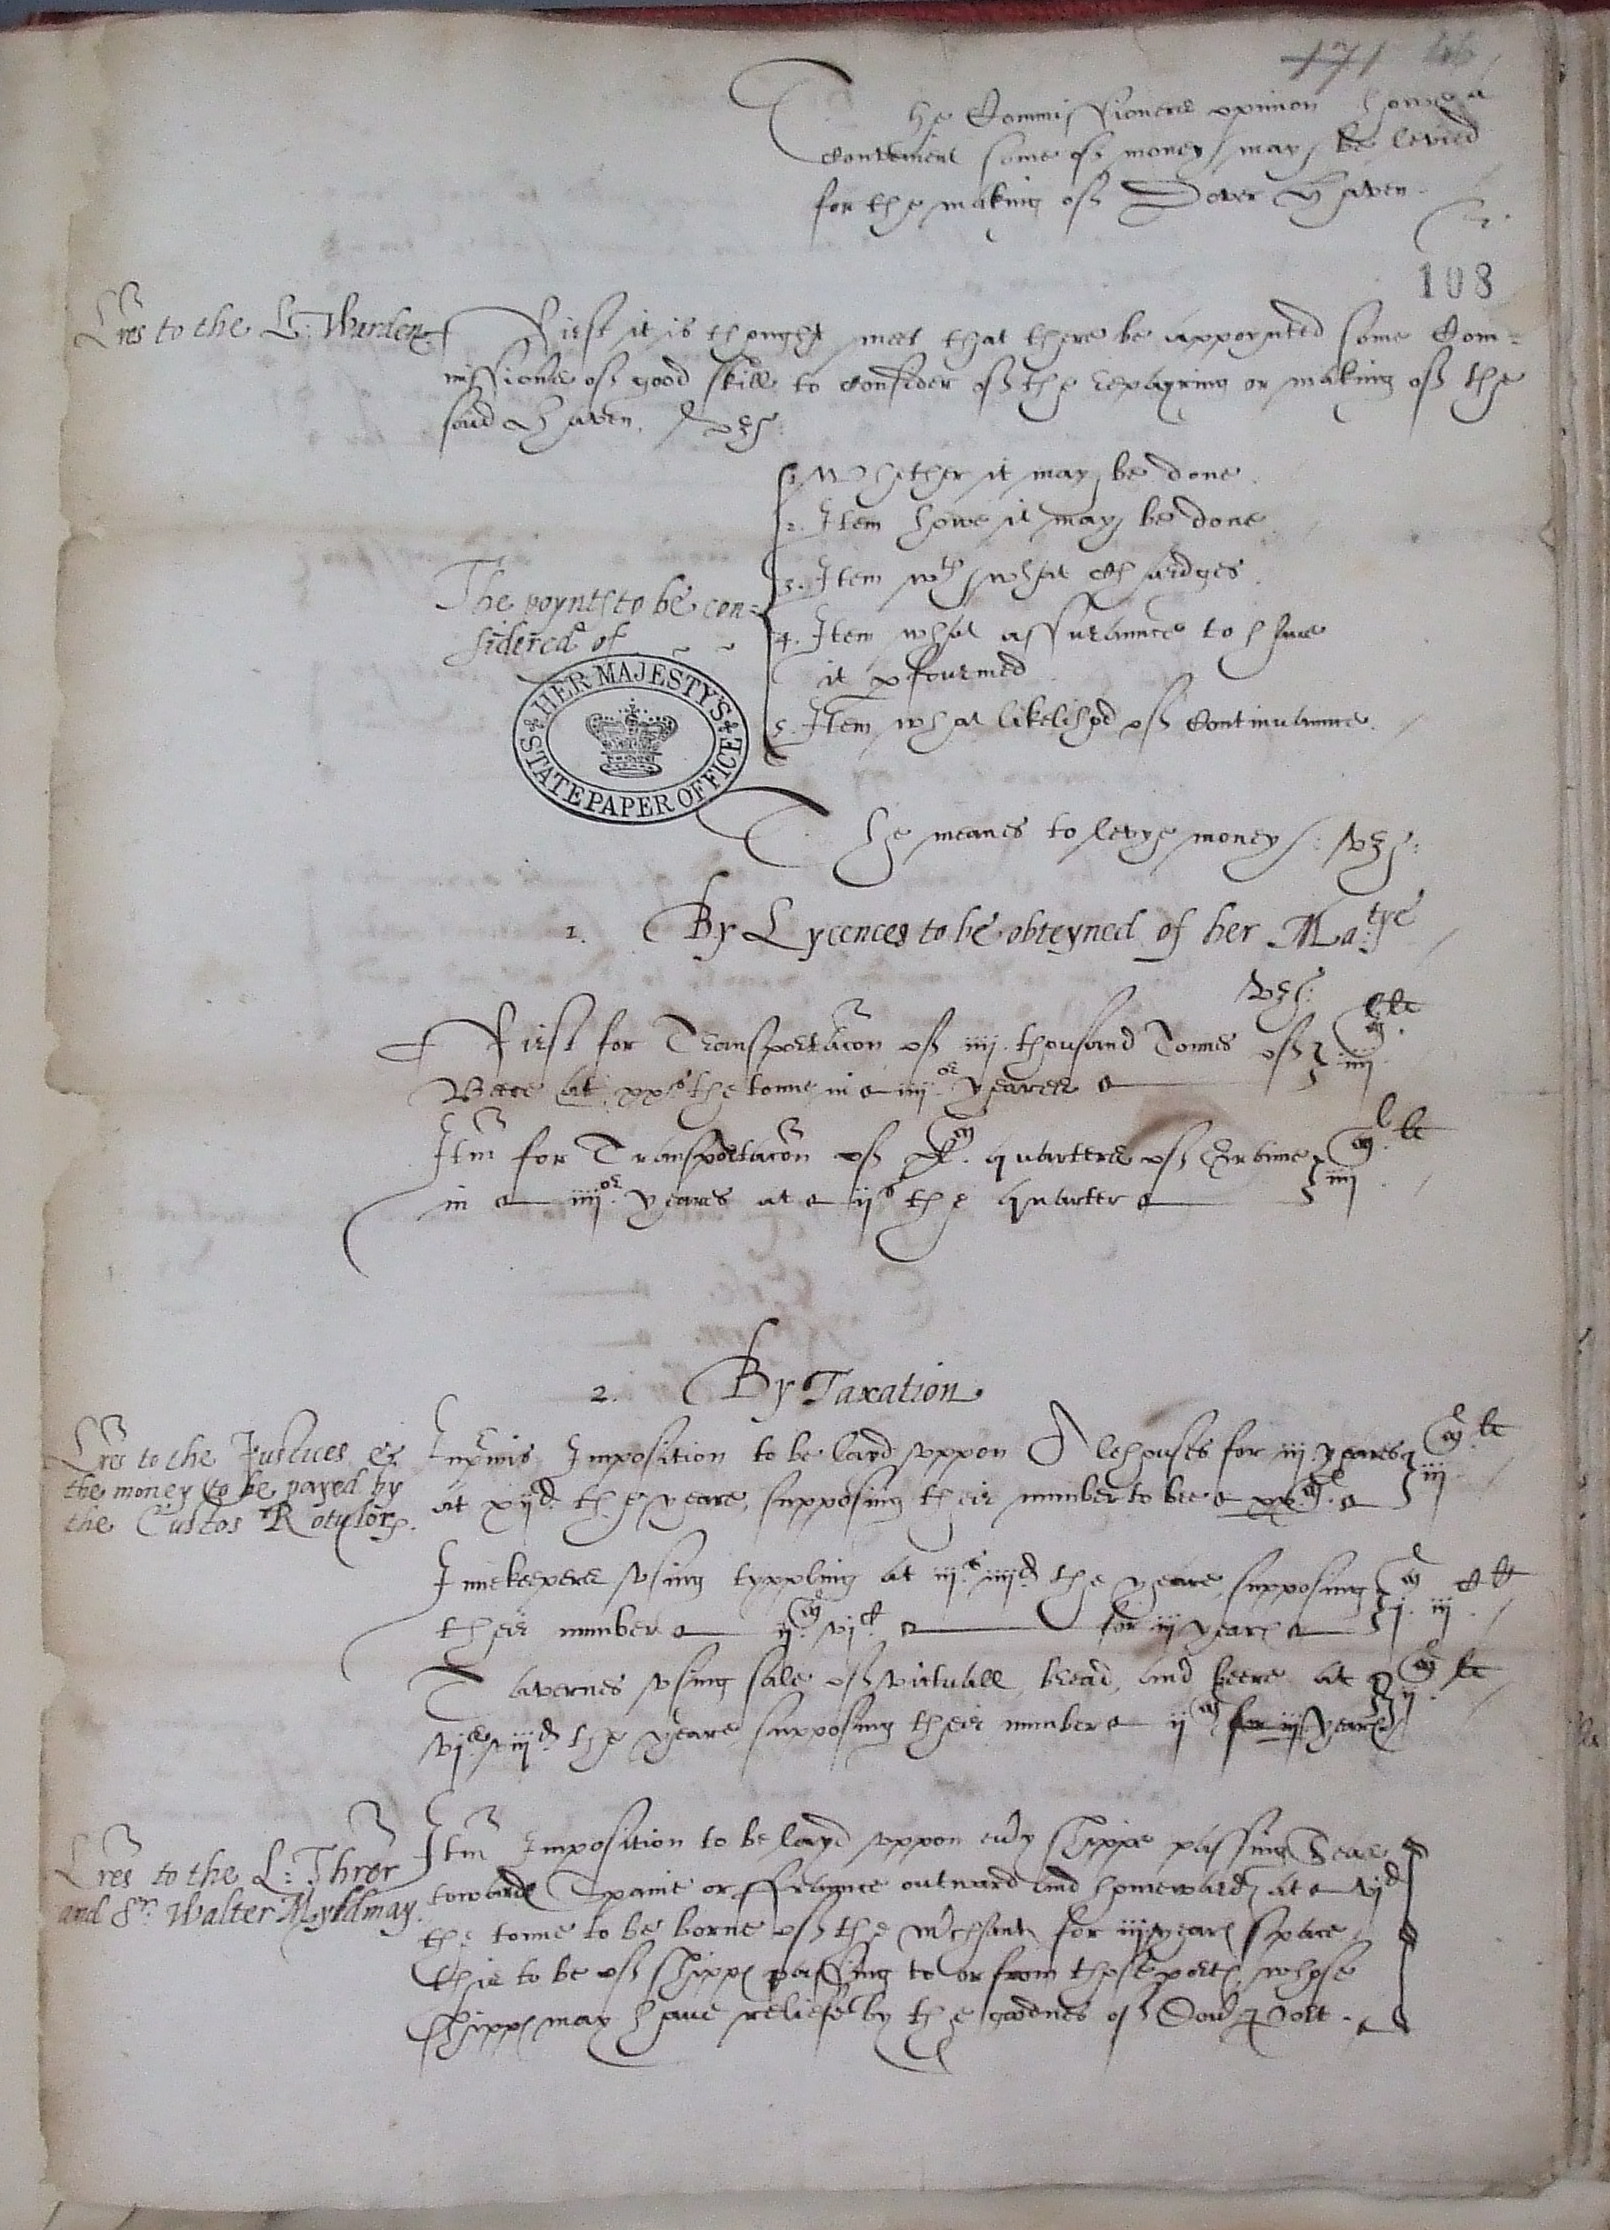 171
The Commissioners opinion howe a
convenient some off money may be levied
for the making off Dover Haven.
108
Lres to the L: Warden
First it is thought meet that there be appoynted some Com=
missioners off good skill to consider off the repayring or making off the
said Haven. vz:
1. Whether it may be done
2. Item howe it may be done
3. Item wth what chardges
The poynts to be con=
sidered of
4. Item what assuraunce to have
it pfourmed
5. Item what likelihod off continuaunce.
HER MAJESTY'S STATE PAPER OFFICE
The meanes to levye money: vz:
1. By Lycences to be obteyned of her Matye
vz:
First for Transportacon off iiij thousand Tonnes off
Beere at xxs the tonne in iiijor yeares iiijM li
Itm for Transportacon off xlM quarters off Graine
in iiijor yeares at ijs the quarter iiijM li
2. By Taxation
Lres to the Justices &
the money to be payed by
the Custos Rotulor
Inprimis Imposition to be laid uppon Alehouses for iij yeares
at xijd the yeare, supposing their number to bee xxM iijM li
Innekeepers using typpling at iijs iiijd the yeare, supposing
their number ijM vjC for iij yeares jM iijC li
Tavernes using sale off victuall, bread, and beere at
vjs viijd the yeare supposing their number ijM for iij yeares ijM li
Lres to the L: Threr
and Sr. Walter Myldmay.
Itm Imposition to be layd uppon eury shippe passing Seas
towardes Spaine or Fraunce outward and homeward at vjd
the tonne to be borne off the mchant for iij years space
this to be off shipps passing to or from those ports whose
shipps may have reliefe by the goodnes off Dour Port.